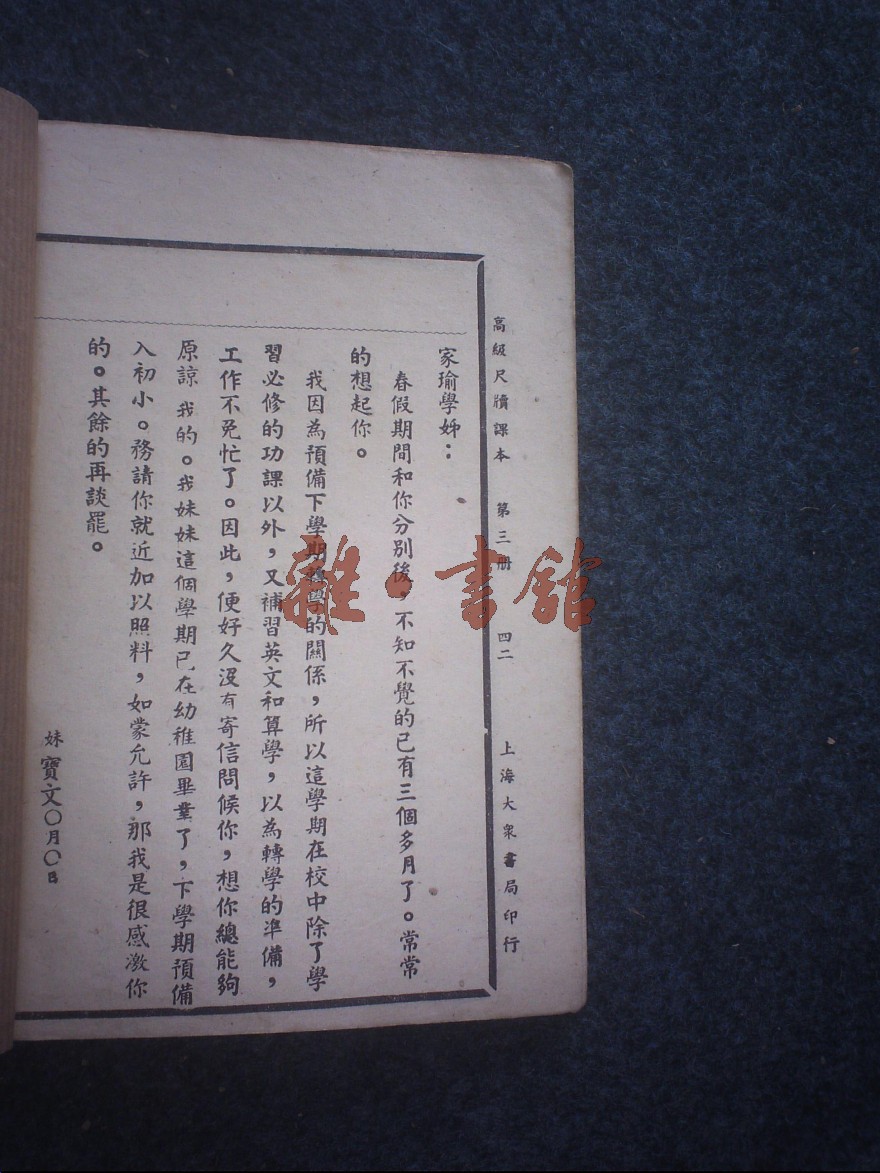 高級尺牘課本 第三册 四二 上海大衆書局印行
家瑜學姊：
春假期間和你分別後，不知不覺的已有三個多月了。常常
的想起你。
我因為預備下學期轉學的關係，所以這學期在校中除了學
習必修的功課以外，又補習英文和算學，以為轉學的準備，
工作不免忙了。因此，便好久沒有寄信問候你，想你總能夠
原諒我的。我妹妹這個學期已在幼稚園畢業了，下學期預備
入初小。務請你就近加以照料，如蒙允許，那我是很感激你
的。其餘的再談罷。
妹寶文〇月〇日
雜·書館